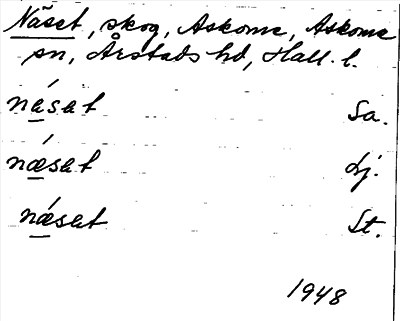 Näset, skog, Askome, Askome
sn, Årstads hd, Hall. l.
nǽsat Sa.
nǽsat Lj.
nǽsat St.
1948